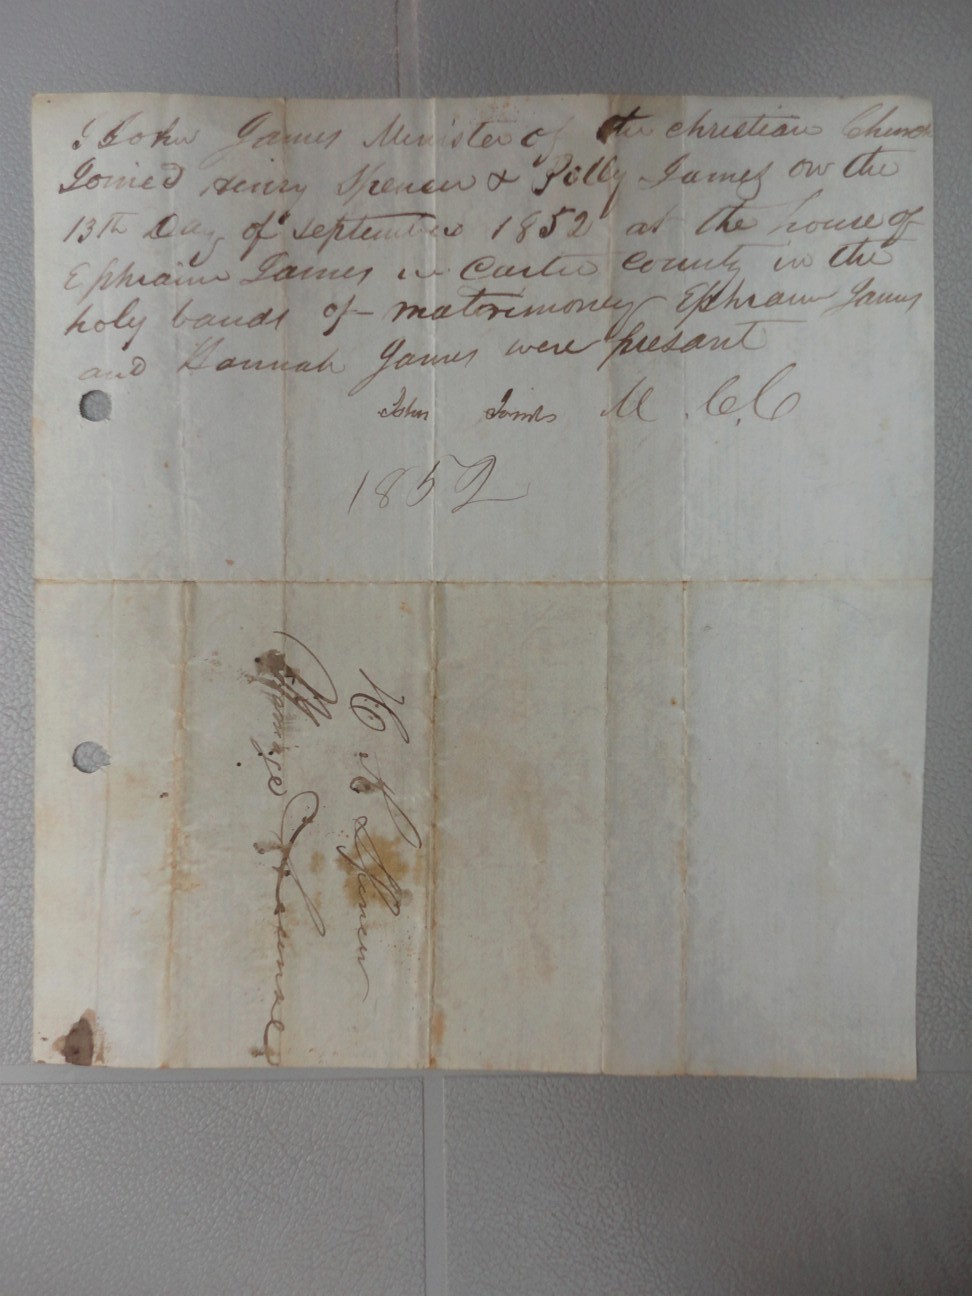 I John James Minister of the christian Church
Joined Henry Spencer & Polly James on the
13th Day of september 1852 at the house of
Ephraim James in Carter county in the
holy bands of matrimoney Ephraim James
and Hannah James were presant
John James M C.C
1852
H Spencer
Marriage License